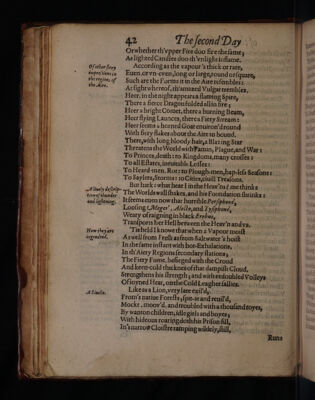 42 The second Day
Or whether th'vpper Fire doo fire the same;
As lighted Candles doo th'vnlight inflame.
Of other fiery impressions in the regions of the Aire.
According as the vapour's thick or rare,
Euen, or vn-euen, long or large, round or square,
Such are the Forms it in the Aire resembles:
At sight whereof, th'amazed Vulgar trembles.
Heer, in the night appears a flaming Spire,
There a fierce Dragon folded all in fire:
Heer a bright Comet, there a burning Beam,
Heer flying Launces, there a Fiery Stream:
Heer seems a horned Goat environ'd round
With fiery flakes about the Aire to bound.
There, with long bloody hair, a Blazing Star
Threatens the World with Famin, Plague, and War:
To Princes, death: to Kingdoms, many crosses:
To all Estates, inevitable Losses:
To Heard-men, Rot: to Plough-men, hap-less Seasons:
To Saylers, Storms: to Cities, ciuill Treasons.
A liuely description of thunder and lightning.
But hark: what hear I in the Heav'ns? me thinks
The Worlds wall shakes, and his Foundation shrinks:
It seems euen now that horrible Persephoné,
Loosing Meger', Alecto, and Tysiphoné,
Weary of raigning in black Erebus,
Transports her Hell between the Heav'n and vs.
How they are ingendred.
'Tis held I knowe that when a Vapour moist
As well from Fresh as from Salt water's hoist
In the same instant with hot-Exhalations,
In th'Aiery Regions secondary stations;
The Fiery Fume, besieged with the Croud
And keen-cold thicknes of that dampish Cloud,
Strengthens his strength; and with redoubled Volleys
Of ioyned Heat, on the Cold Leaguer sallies.
A Simile.
Like as a Lion, very late exil'd,
From's natiue Forests, spet-at and reuil'd,
Mockt, moov'd, and troubled with a thousand toyes,
By wanton children, idle girls and boyes;
With hideous roaring doth his Prison fill,
In's narrow Cloistre ramping wildely, still,
Runs